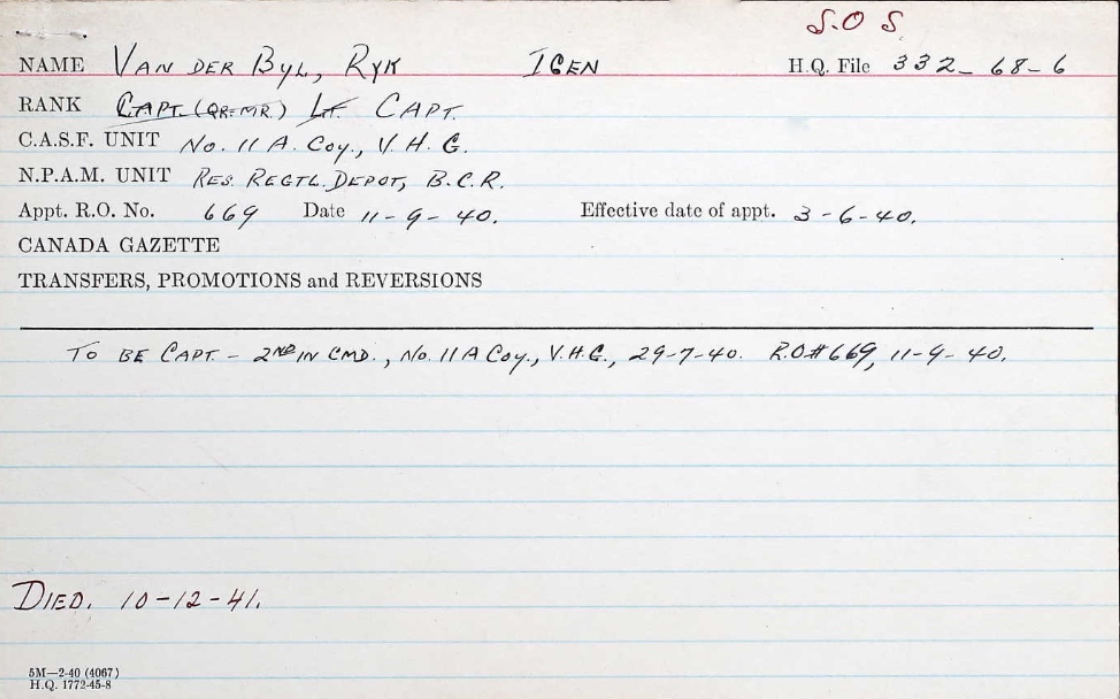 S.O S.
NAME VAN DER BYL, RYK IGEN H.Q. File 332-68-6
RANK CAPT. (QR-MR.) LT. CAPT.
C.A.S.F. UNIT No. 11 A. Coy., V. H. G.
N.P.A.M. UNIT RES. REGTL. DEPOT, B.C.R.
Appt. R.O. No. 669 Date 11-9-40. Effective date of appt. 3-6-40.
CANADA GAZETTE
TRANSFERS, PROMOTIONS and REVERSIONS
TO BE CAPT. - 2ND IN CMD., No. 11 A Coy., V.H.G., 29-7-40. R.O# 669, 11-9-40.
DIED. 10-12-41.
5M—2-40 (4067)
H.Q. 1772-45-8